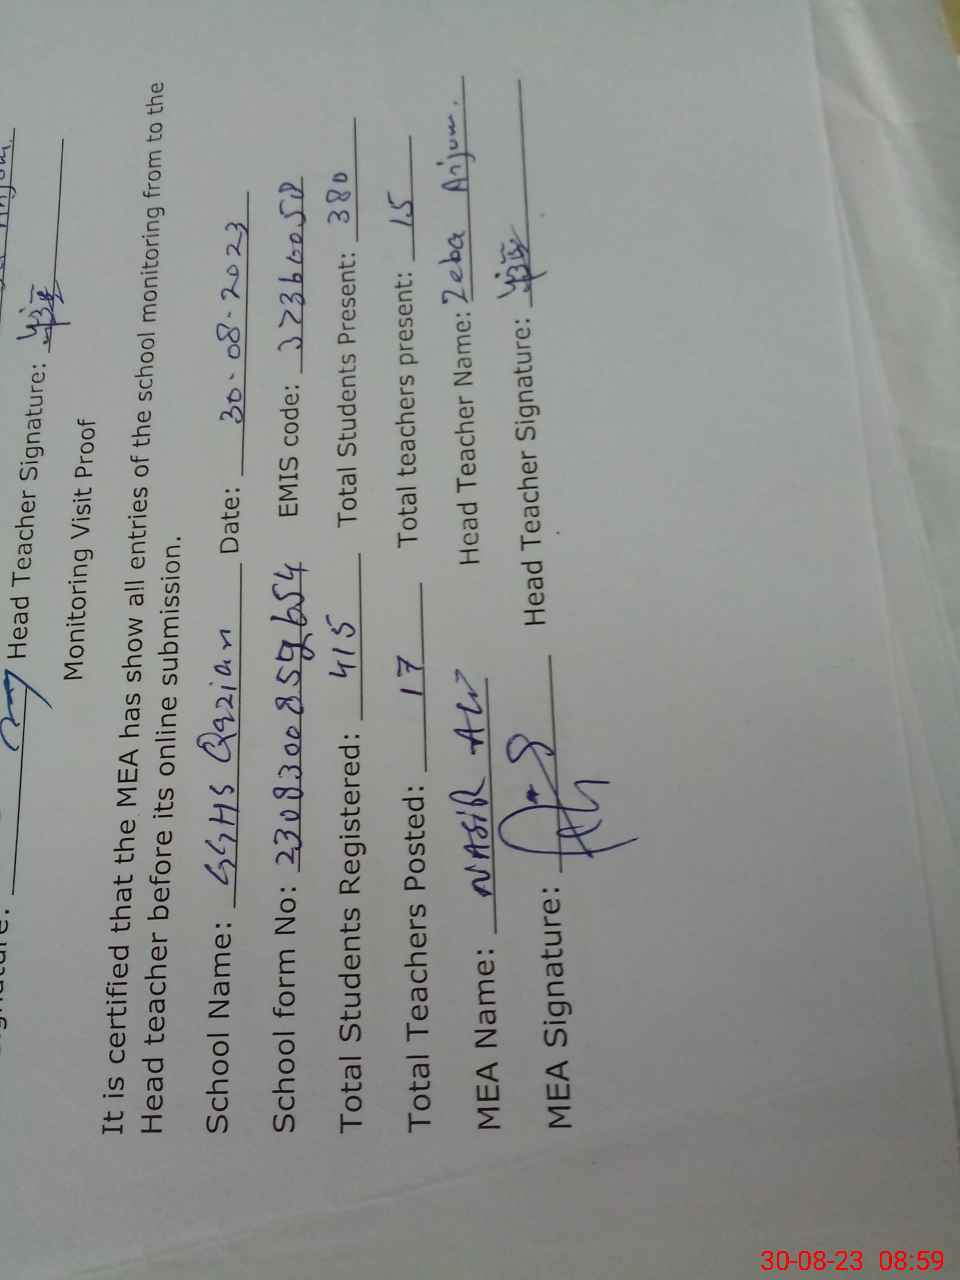 Head Teacher Signature:
Monitoring Visit Proof
It is certified that the MEA has show all entries of the school monitoring from to the
Head teacher before its online submission.
School Name: GGHS Qazian Date: 30-08-2023
School form No: 2308300859654 EMIS code: 37360058
Total Students Registered: 415 Total Students Present: 380
Total Teachers Posted: 17 Total teachers present: 15
MEA Name: NASIR ALI Head Teacher Name: Zeba Anjum.
MEA Signature: Head Teacher Signature:
30-08-23 08:59